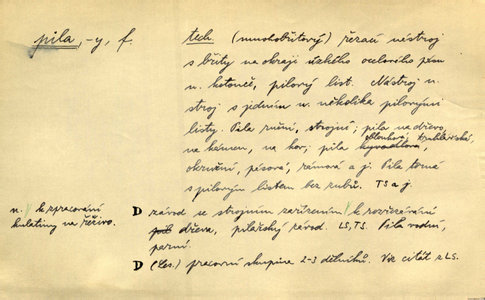 pila, -y, f.
tech. (mnohobřitový) řezací nástroj
s břity na okraji úzkého ocelového pásu
n. kotouče, pilový list. Nástroj n.
stroj s jedním n. několika pilovými
listy. Pila ruční, strojní; pila na dřevo,
oblouková, truhlářská,
na kámen, na kov; pila
okružní, pásová, rámová a j. Pila tenná
s pilovým listem bez zubů. TS a j.
D závod se strojním zařízením k rozřezávání
dřeva, pilařský závod. LS, TS. Pila vodní,
parní.
n. k zpracování
kulatiny na řezivo.
D (les.) pracovní skupina 2-3 dělníků. Viz citát z LS.